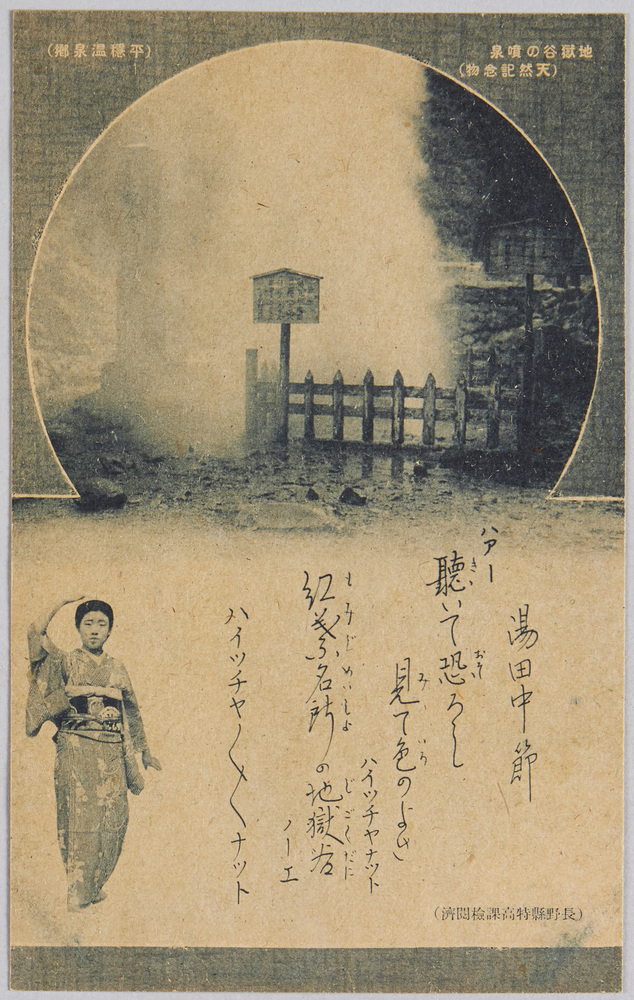 地獄谷の噴泉
(天然記念物)
(平穩温泉鄉)
湯田中節
ハアー
聽いて恐ろし
見て色のよい
ハイツチヤナツト
もみぢめいしよ じごくだに
紅葉名所の地獄谷
ノーエ
ハイツチヤ〱〱ナツト
(長野縣特高課檢閲濟)